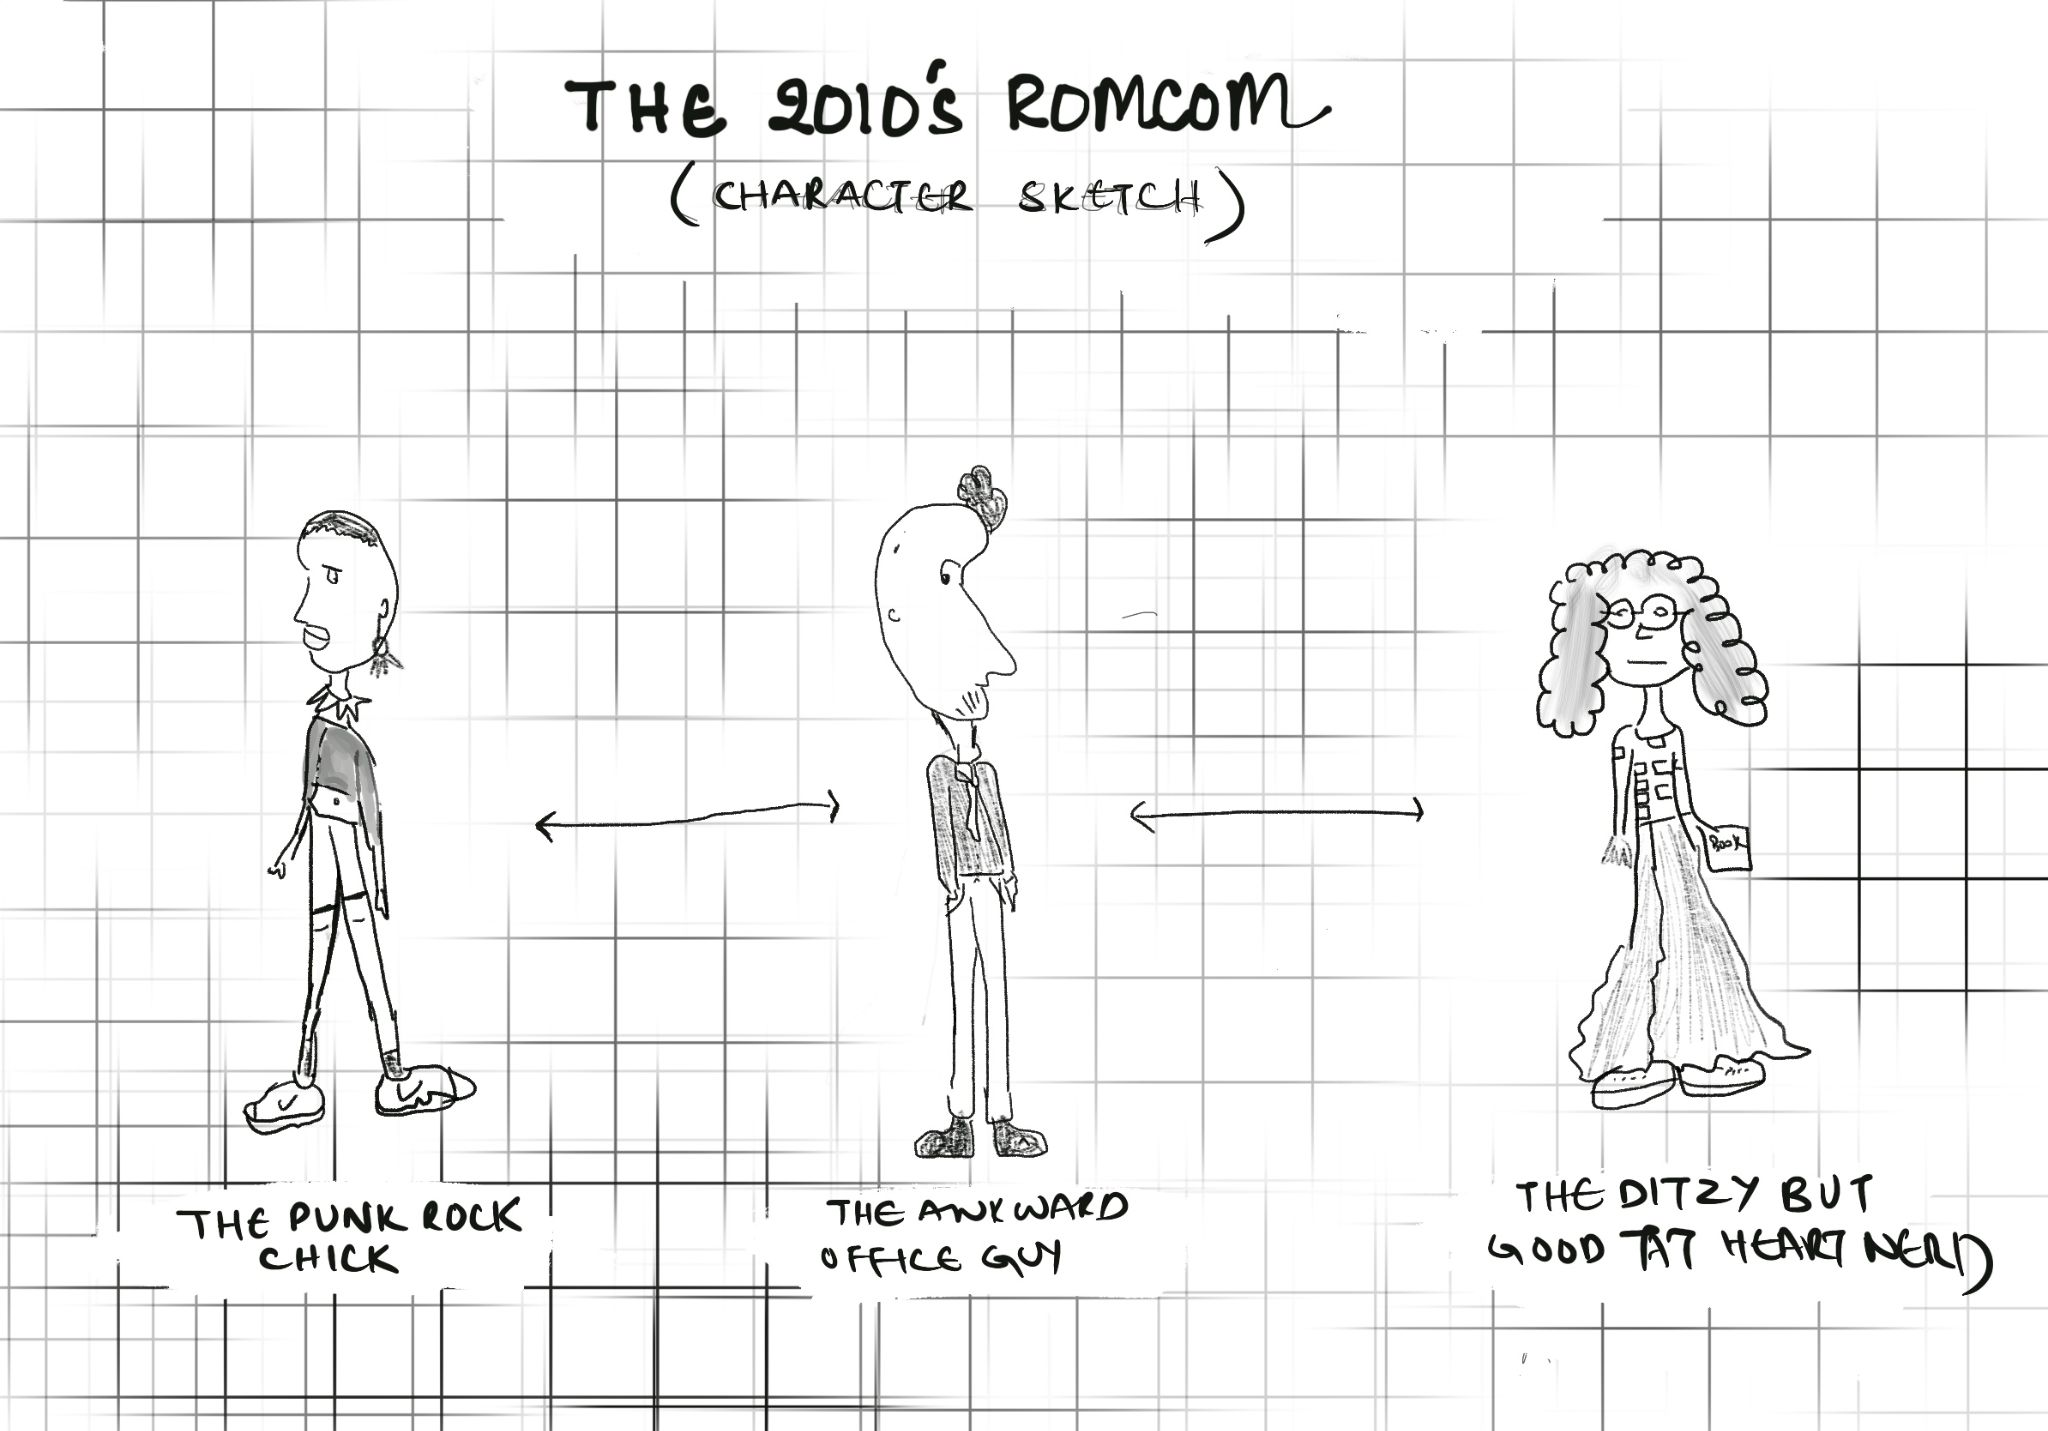 THE 2010's ROMCOM
(CHARACTER SKETCH)
BOOK
THE PUNK ROCK
CHICK
THE AWKWARD
OFFICE GUY
THE DITZY BUT
GOOD TAT HEART NERD